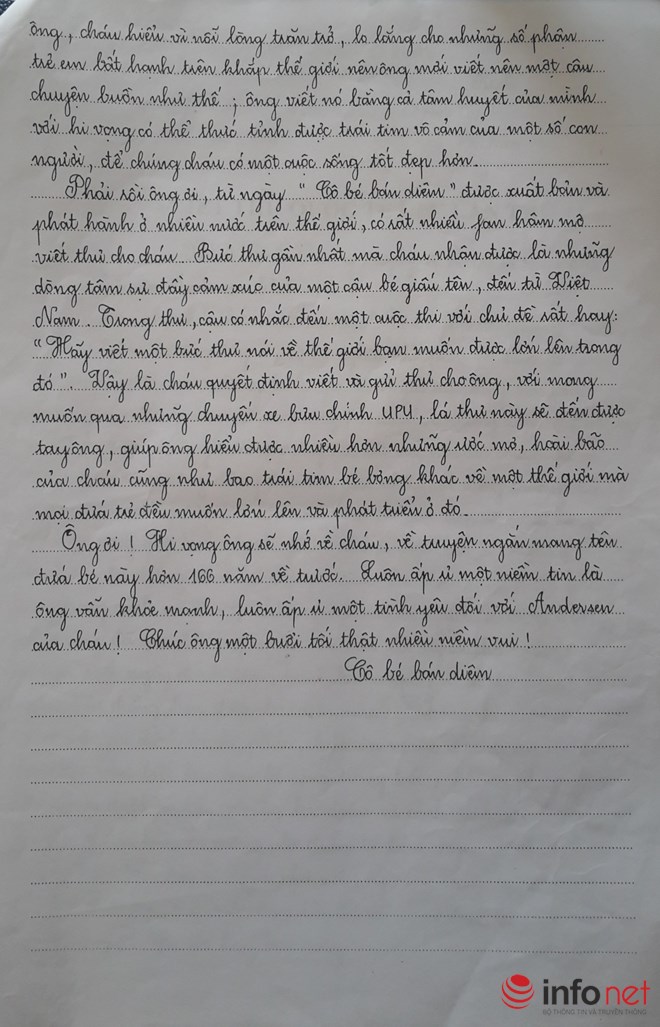 ông, cháu hiểu vì nỗi lòng trăn trở, lo lắng cho những số phận
trẻ em bất hạnh trên khắp thế giới nên ông mới viết nên một câu
chuyện buồn như thế; ông viết nó bằng cả tâm huyết của mình
với hi vọng có thể thức tỉnh được trái tim vô cảm của một số con
người, để chúng cháu có một cuộc sống tốt đẹp hơn.
Phải rồi ông ơi, từ ngày "Cô bé bán diêm" được xuất bản và
phát hành ở nhiều nước trên thế giới, có rất nhiều fan hâm mộ
viết thư cho cháu. Bức thư gần nhất mà cháu nhận được là những
dòng tâm sự đầy cảm xúc của một cậu bé giấu tên, đến từ Việt
Nam. Trong thư, cậu có nhắc đến một cuộc thi với chủ đề rất hay:
"Hãy viết một bức thư nói về thế giới bạn muốn được lớn lên trong
đó". Vậy là cháu quyết định viết và gửi thư cho ông, với mong
muốn qua những chuyến xe bưu chính UPU, lá thư này sẽ đến được
tay ông, giúp ông hiểu được nhiều hơn những ước mơ, hoài bão
của cháu cũng như bao trái tim bé bỏng khác về một thế giới mà
mọi đứa trẻ đều muốn lớn lên và phát triển ở đó.
Ông ơi! Hi vọng ông sẽ nhớ về cháu, về truyện ngắn mang tên
đứa bé này hơn 166 năm về trước. Luôn ấp ủ một niềm tin là
ông vẫn khỏe mạnh, luôn ấp ủ một tình yêu đối với Andersen
của cháu! Chúc ông một buổi tối thật nhiều niềm vui!
Cô bé bán diêm
infonet
BỘ THÔNG TIN VÀ TRUYỀN THÔNG